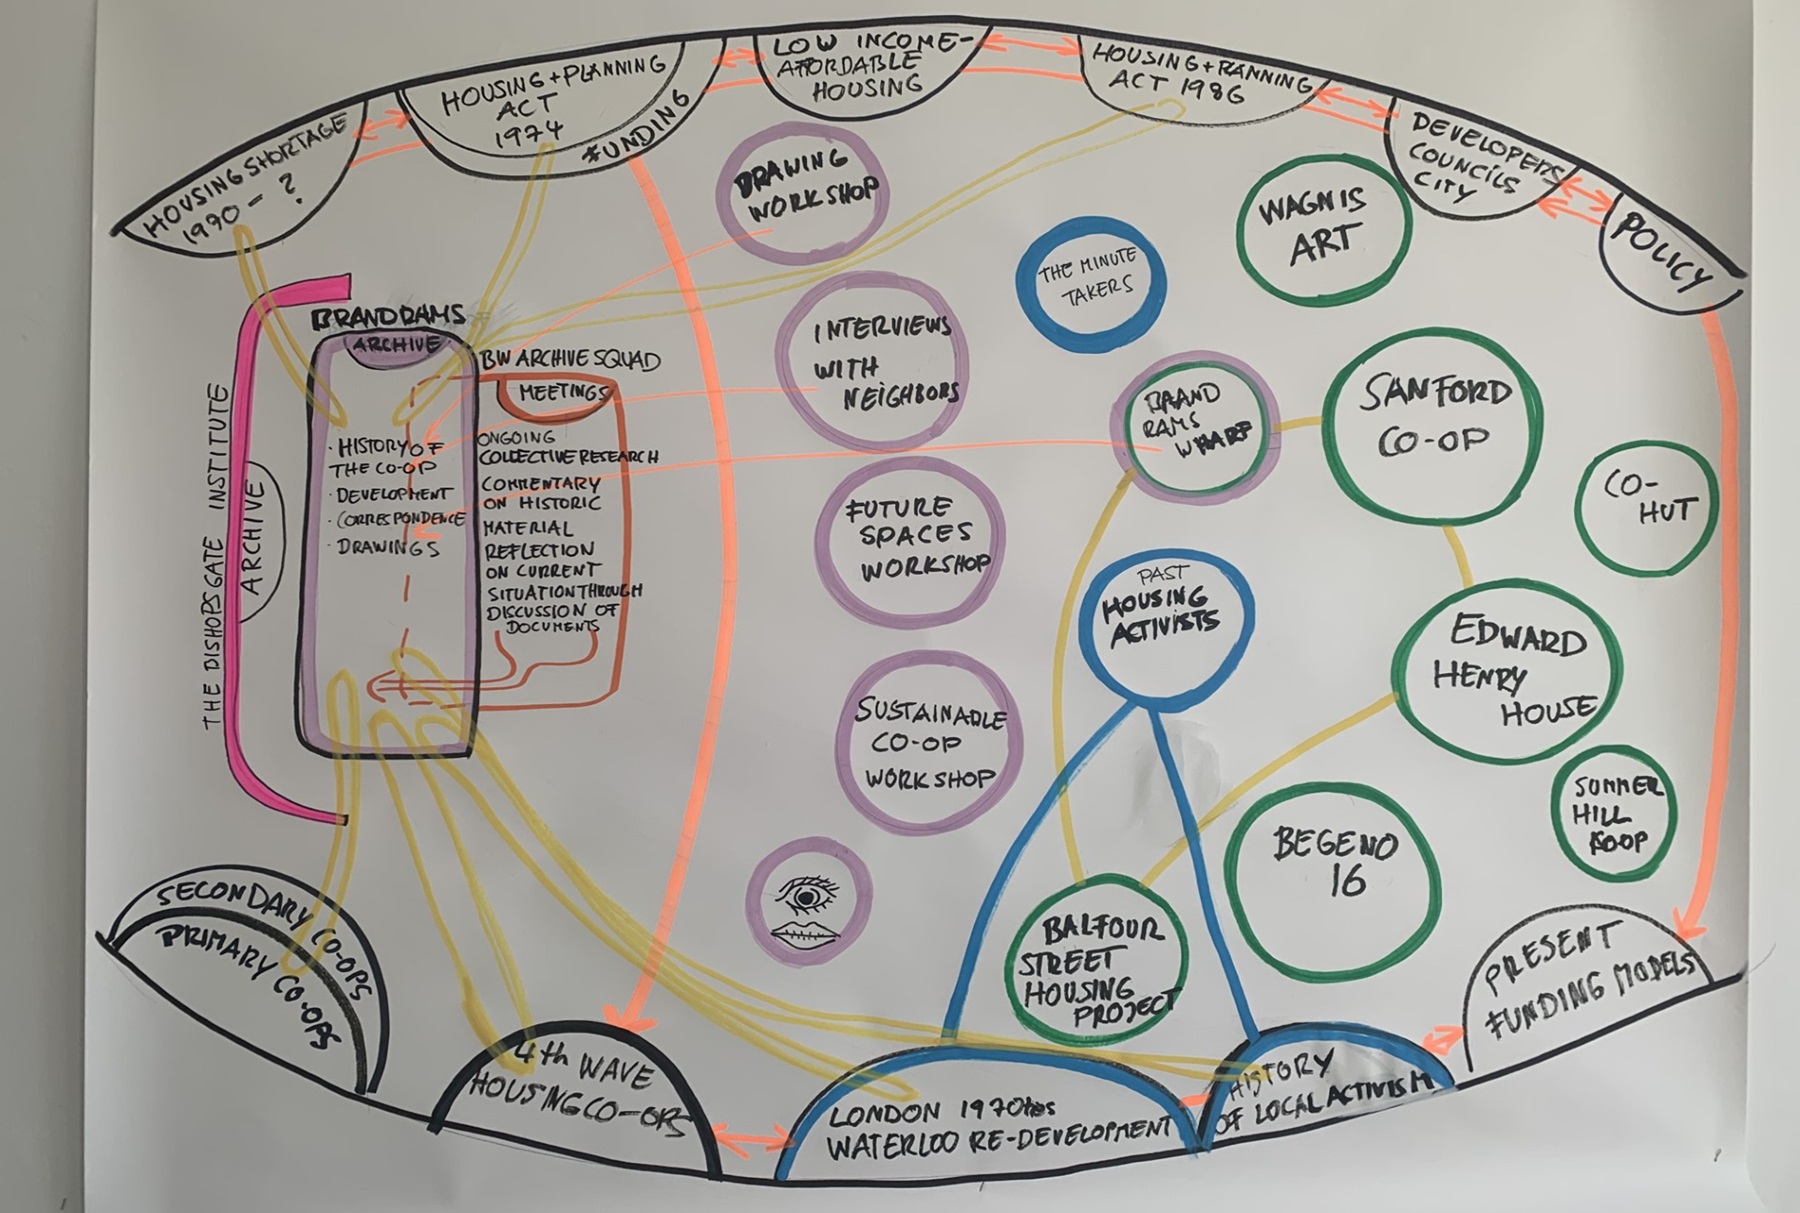 HOUSING SHORTAGE
1990 - ?
HOUSING + PLANNING
ACT
1974
FUNDING
LOW INCOME-
AFFORDABLE
HOUSING
HOUSING + PLANNING
ACT 1986
DEVELOPERS
COUNCILS
CITY
POLICY
DRAWING
WORKSHOP
INTERVIEWS
WITH
NEIGHBORS
FUTURE
SPACES
WORKSHOP
SUSTAINABLE
CO-OP
WORKSHOP
THE MINUTE
TAKERS
WAGNIS
ART
BRAND
RAMS
WHARF
SANFORD
CO-OP
CO-
HUT
PAST
HOUSING
ACTIVISTS
EDWARD
HENRY
HOUSE
SUMMER
HILL
KOOP
BEGENO
16
BALFOUR
STREET
HOUSING
PROJECT
THE BISHOPSGATE INSTITUTE
ARCHIVE
BRANDRAMS
ARCHIVE
· HISTORY OF
THE CO-OP
· DEVELOPMENT
· CORRESPONDENCE
· DRAWINGS
BW ARCHIVE SQUAD
MEETINGS
ONGOING
COLLECTIVE RESEARCH
COMMENTARY
ON HISTORIC
MATERIAL
REFLECTION
ON CURRENT
SITUATION THROUGH
DISCUSSION OF
DOCUMENTS
SECONDARY CO-OPS
PRIMARY CO-OPS
4th WAVE
HOUSING CO-OPS
LONDON 1970ties
WATERLOO RE-DEVELOPMENT
HISTORY
OF LOCAL ACTIVISM
PRESENT
FUNDING MODELS